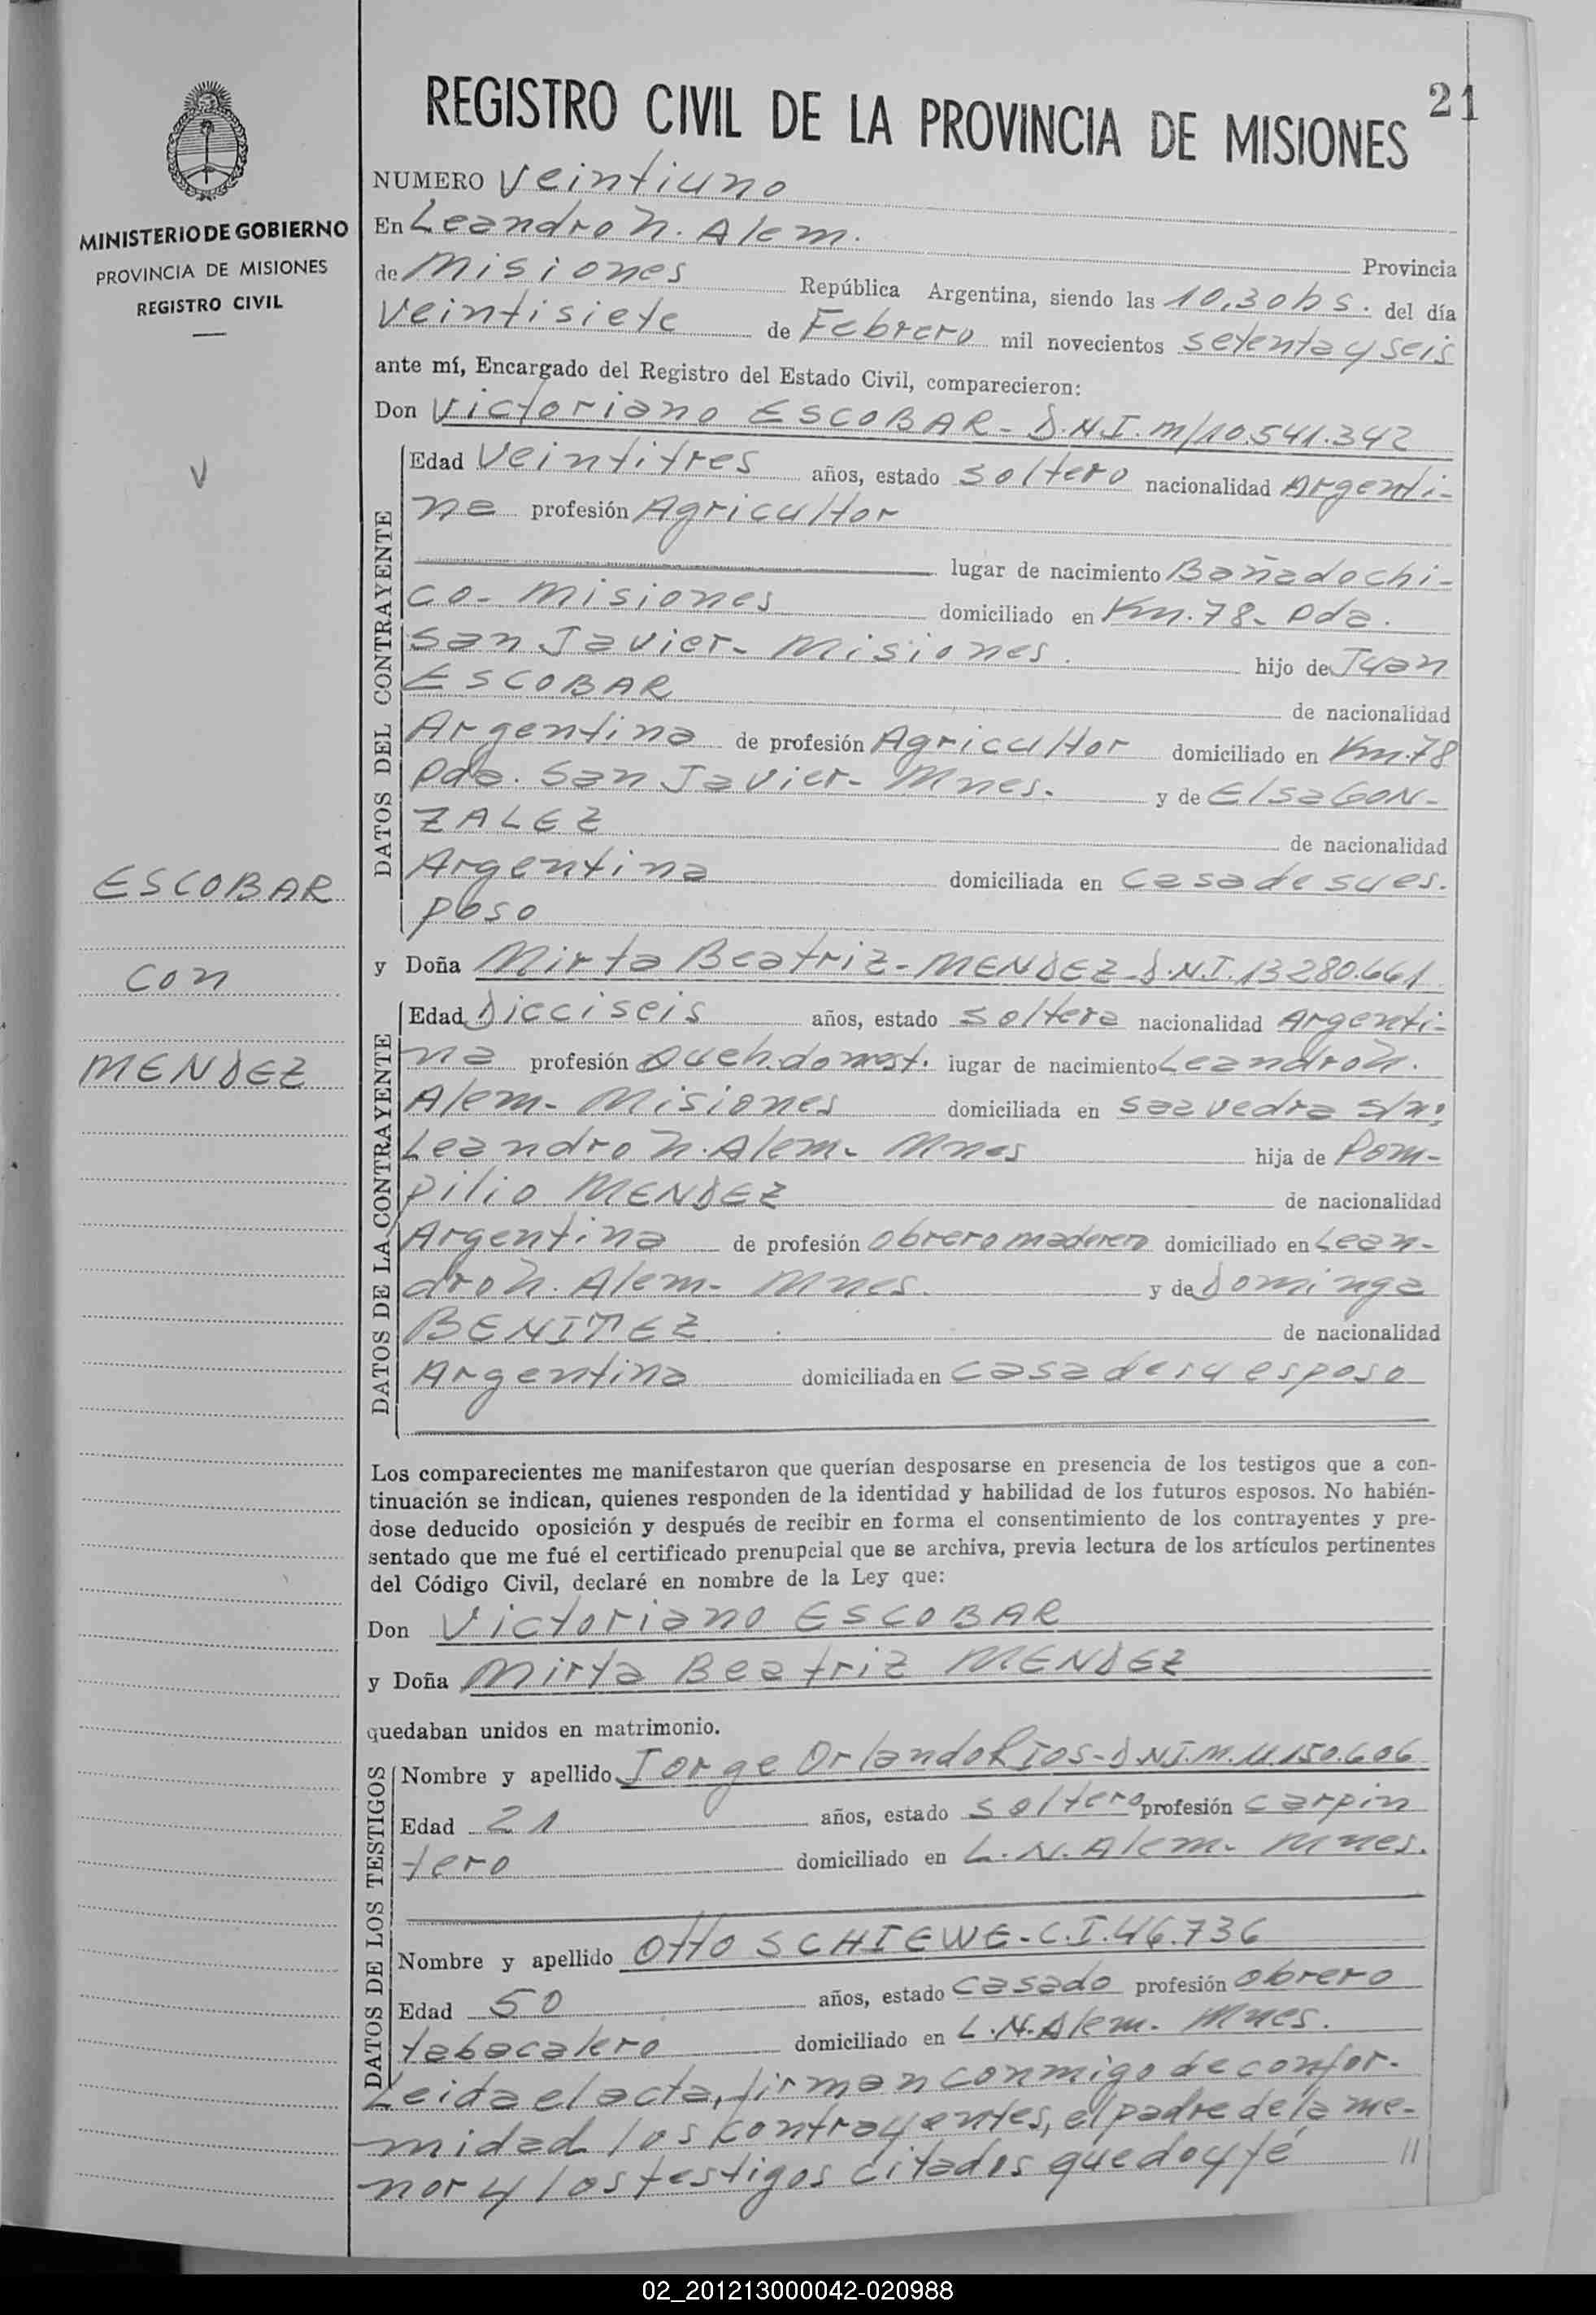 21
REGISTRO CIVIL DE LA PROVINCIA DE MISIONES
MINISTERIO DE GOBIERNO
PROVINCIA DE MISIONES
REGISTRO CIVIL
V
ESCOBAR
con
MENDEZ
NUMERO Veintiuno
En Leandro N. Alem. Provincia
de Misiones República Argentina, siendo las 10,30 hs. del día
Veintisiete de Febrero mil novecientos setenta y seis
ante mí, Encargado del Registro del Estado Civil, comparecieron:
Don Victoriano ESCOBAR - D.N.I. m/10.541.342
DATOS DEL CONTRAYENTE
Edad Veintitres años, estado soltero nacionalidad Argenti-
na profesión Agricultor
lugar de nacimiento Bañado chi-
co - Misiones domiciliado en Km. 78 - Pda.
San Javier - Misiones. hijo de Juan
ESCOBAR de nacionalidad
Argentina de profesión Agricultor domiciliado en Km. 78
Pda. San Javier - Mnes. y de Elsa GON-
ZALEZ de nacionalidad
Argentina domiciliada en casa de su es.
poso
y Doña Mirta Beatriz - MENDEZ - D.N.I. 13280.661
DATOS DE LA CONTRAYENTE
Edad Dieciseis años, estado soltera nacionalidad Argenti-
na profesión Queh. domest. lugar de nacimiento Leandro N.
Alem - Misiones domiciliada en Saavedra s/n:
Leandro N. Alem - Mnes hija de Pom-
pilio MENDEZ de nacionalidad
Argentina de profesión obrero maderero domiciliado en Lean-
dro N. Alem - Mnes. y de Dominga
BENITEZ de nacionalidad
Argentina domiciliada en casa de su esposo
Los comparecientes me manifestaron que querían desposarse en presencia de los testigos que a con-
tinuación se indican, quienes responden de la identidad y habilidad de los futuros esposos. No habién-
dose deducido oposición y después de recibir en forma el consentimiento de los contrayentes y pre-
sentado que me fué el certificado prenupcial que se archiva, previa lectura de los artículos pertinentes
del Código Civil, declaré en nombre de la Ley que:
Don Victoriano ESCOBAR
y Doña Mirta Beatriz MENDEZ
quedaban unidos en matrimonio.
DATOS DE LOS TESTIGOS
Nombre y apellido Jorge Orlando RIOS - D.N.I. M. 11.150.606
Edad 21 años, estado soltero profesión carpin
tero domiciliado en L. N. Alem - Mnes.
Nombre y apellido Otto SCHIEWE - C.I. 46.736
Edad 50 años, estado casado profesión obrero
tabacalero domiciliado en L. N. Alem - Mnes.
Leida el acta, firman conmigo de confor-
midad los contrayentes, el padre de la me-
nor y los testigos citados que doy fé //
02_201213000042-020988